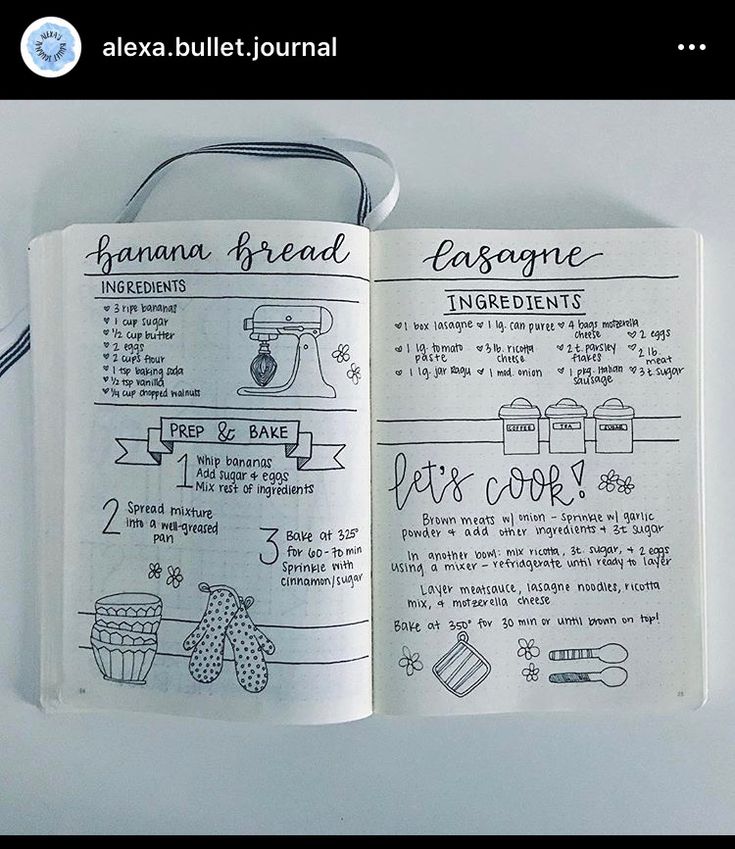 ALEXA'S
BULLET JOURNAL
alexa.bullet.journal
banana bread
INGREDIENTS
3 ripe bananas
1 cup sugar
1/2 cup butter
2 eggs
2 cups flour
1 tsp baking soda
1/2 tsp vanilla
1/4 cup chopped walnuts
PREP & BAKE
1 Whip bananas
Add sugar & eggs
Mix rest of ingredients
2 Spread mixture
into a well-greased
pan
3 Bake at 325°
for 60-70 min
Sprinkle with
cinnamon/sugar
84
lasagne
INGREDIENTS
1 box lasagne
1 lg. can puree
4 bags motzerella
cheese
2 eggs
1 lg. tomato
paste
3 lb. ricotta
cheese
2 t. parsley
flakes
2 lb.
meat
1 lg. jar Ragu
1 med. onion
1 pkg. Italian
sausage
3 t. sugar
COFFEE
TEA
SUGAR
let's cook!
Brown meats w/ onion - Sprinkle w/ garlic
powder & add other ingredients + 3t sugar
In another bowl: mix ricotta, 3t. sugar, + 2 eggs
using a mixer - refridgerate until ready to layer
Layer meatsauce, lasagne noodles, ricotta
mix, & motzerella cheese
Bake at 350° for 30 min or until brown on top!
85